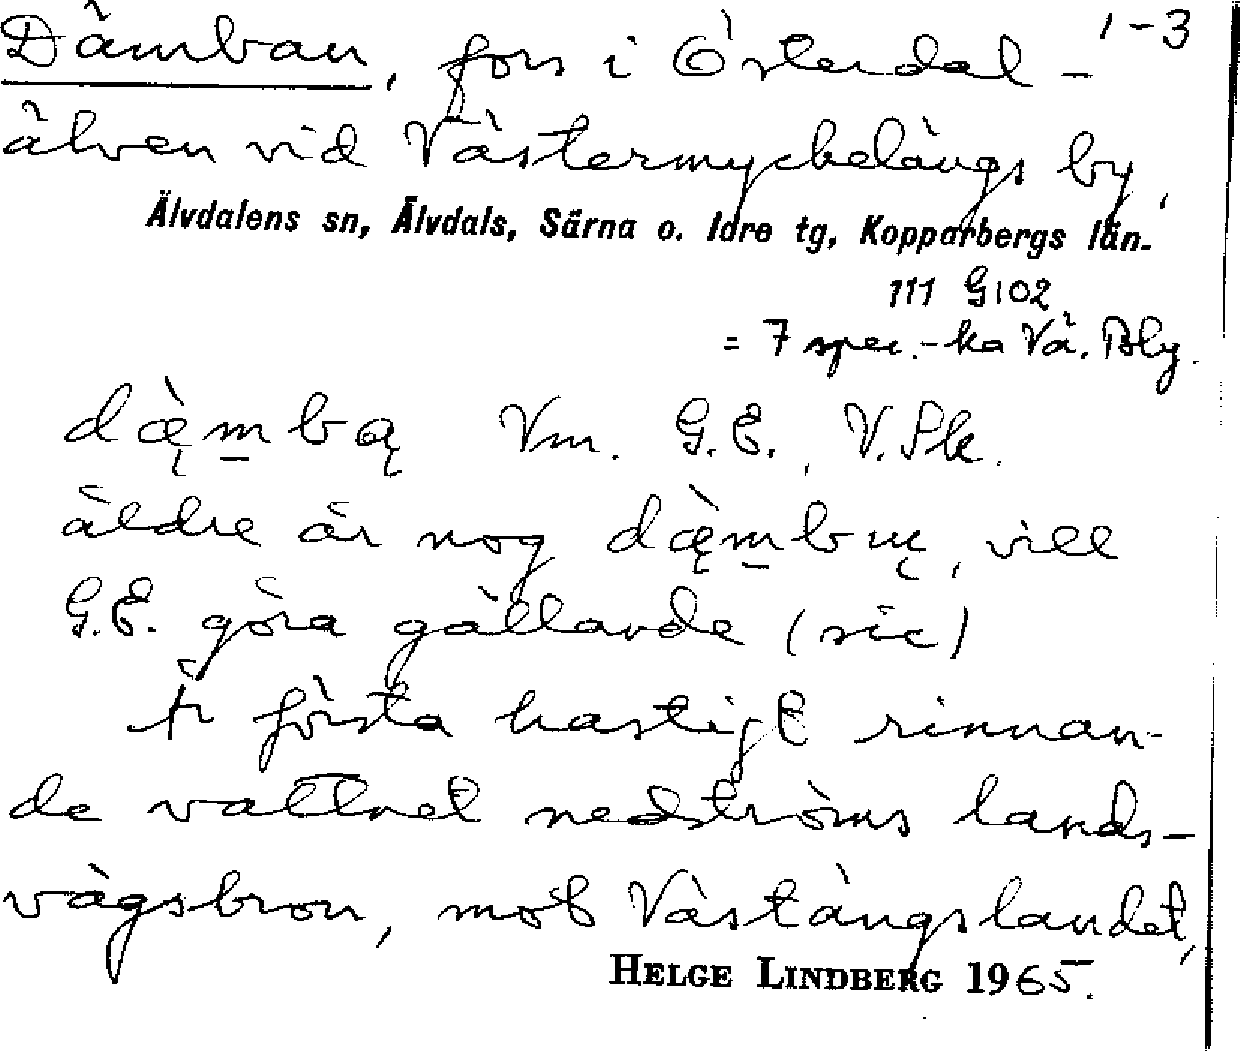 Dämban, fors i Österdal- 1-3
älven vid Västermyckelängs by,
Älvdalens sn, Älvdals, Särna o. Idre tg, Kopparbergs län.
111 G102
= 7 spec.-ka Vä. Bly.
dæ̨̀m̲bą Vm. G.E., V.Sk.
äldre är nog dæ̨̀m̲bų, vill
G.E. göra gällande (sic)
Är första hastigt rinnan-
de vattnet nedströms lands-
vägsbron, mot Västängslandet,
HELGE LINDBERG 1965.